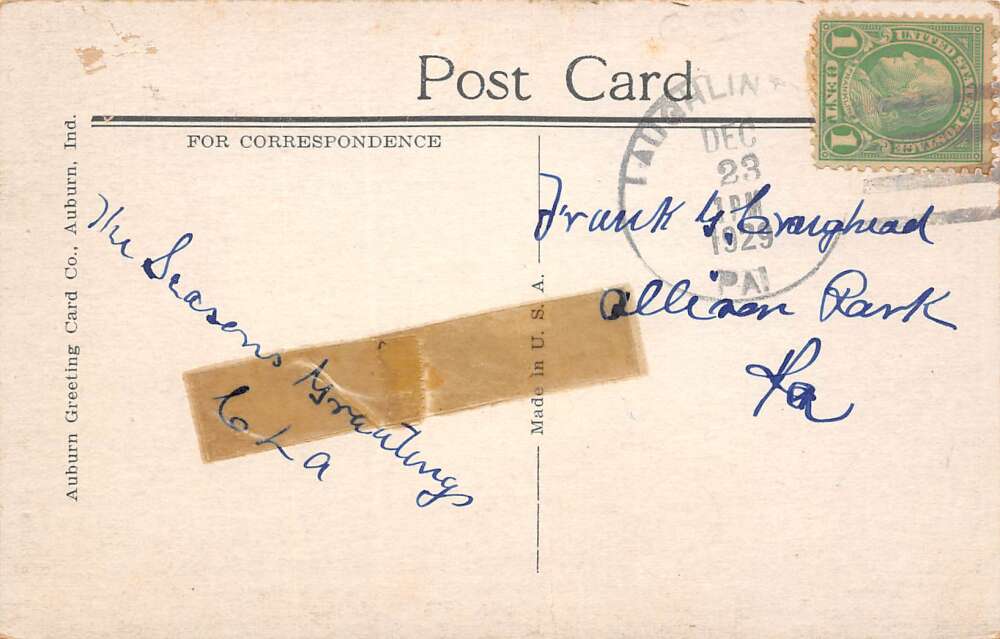 Post Card
FOR CORRESPONDENCE
LAUGHLIN
DEC
23
1 PM
1929
PA.
UNITED STATES POSTAGE
1 1
Auburn Greeting Card Co., Auburn, Ind.
Made in U. S. A.
The Seasons Greetings
Frank G. Craighead
Allison Park
Pa